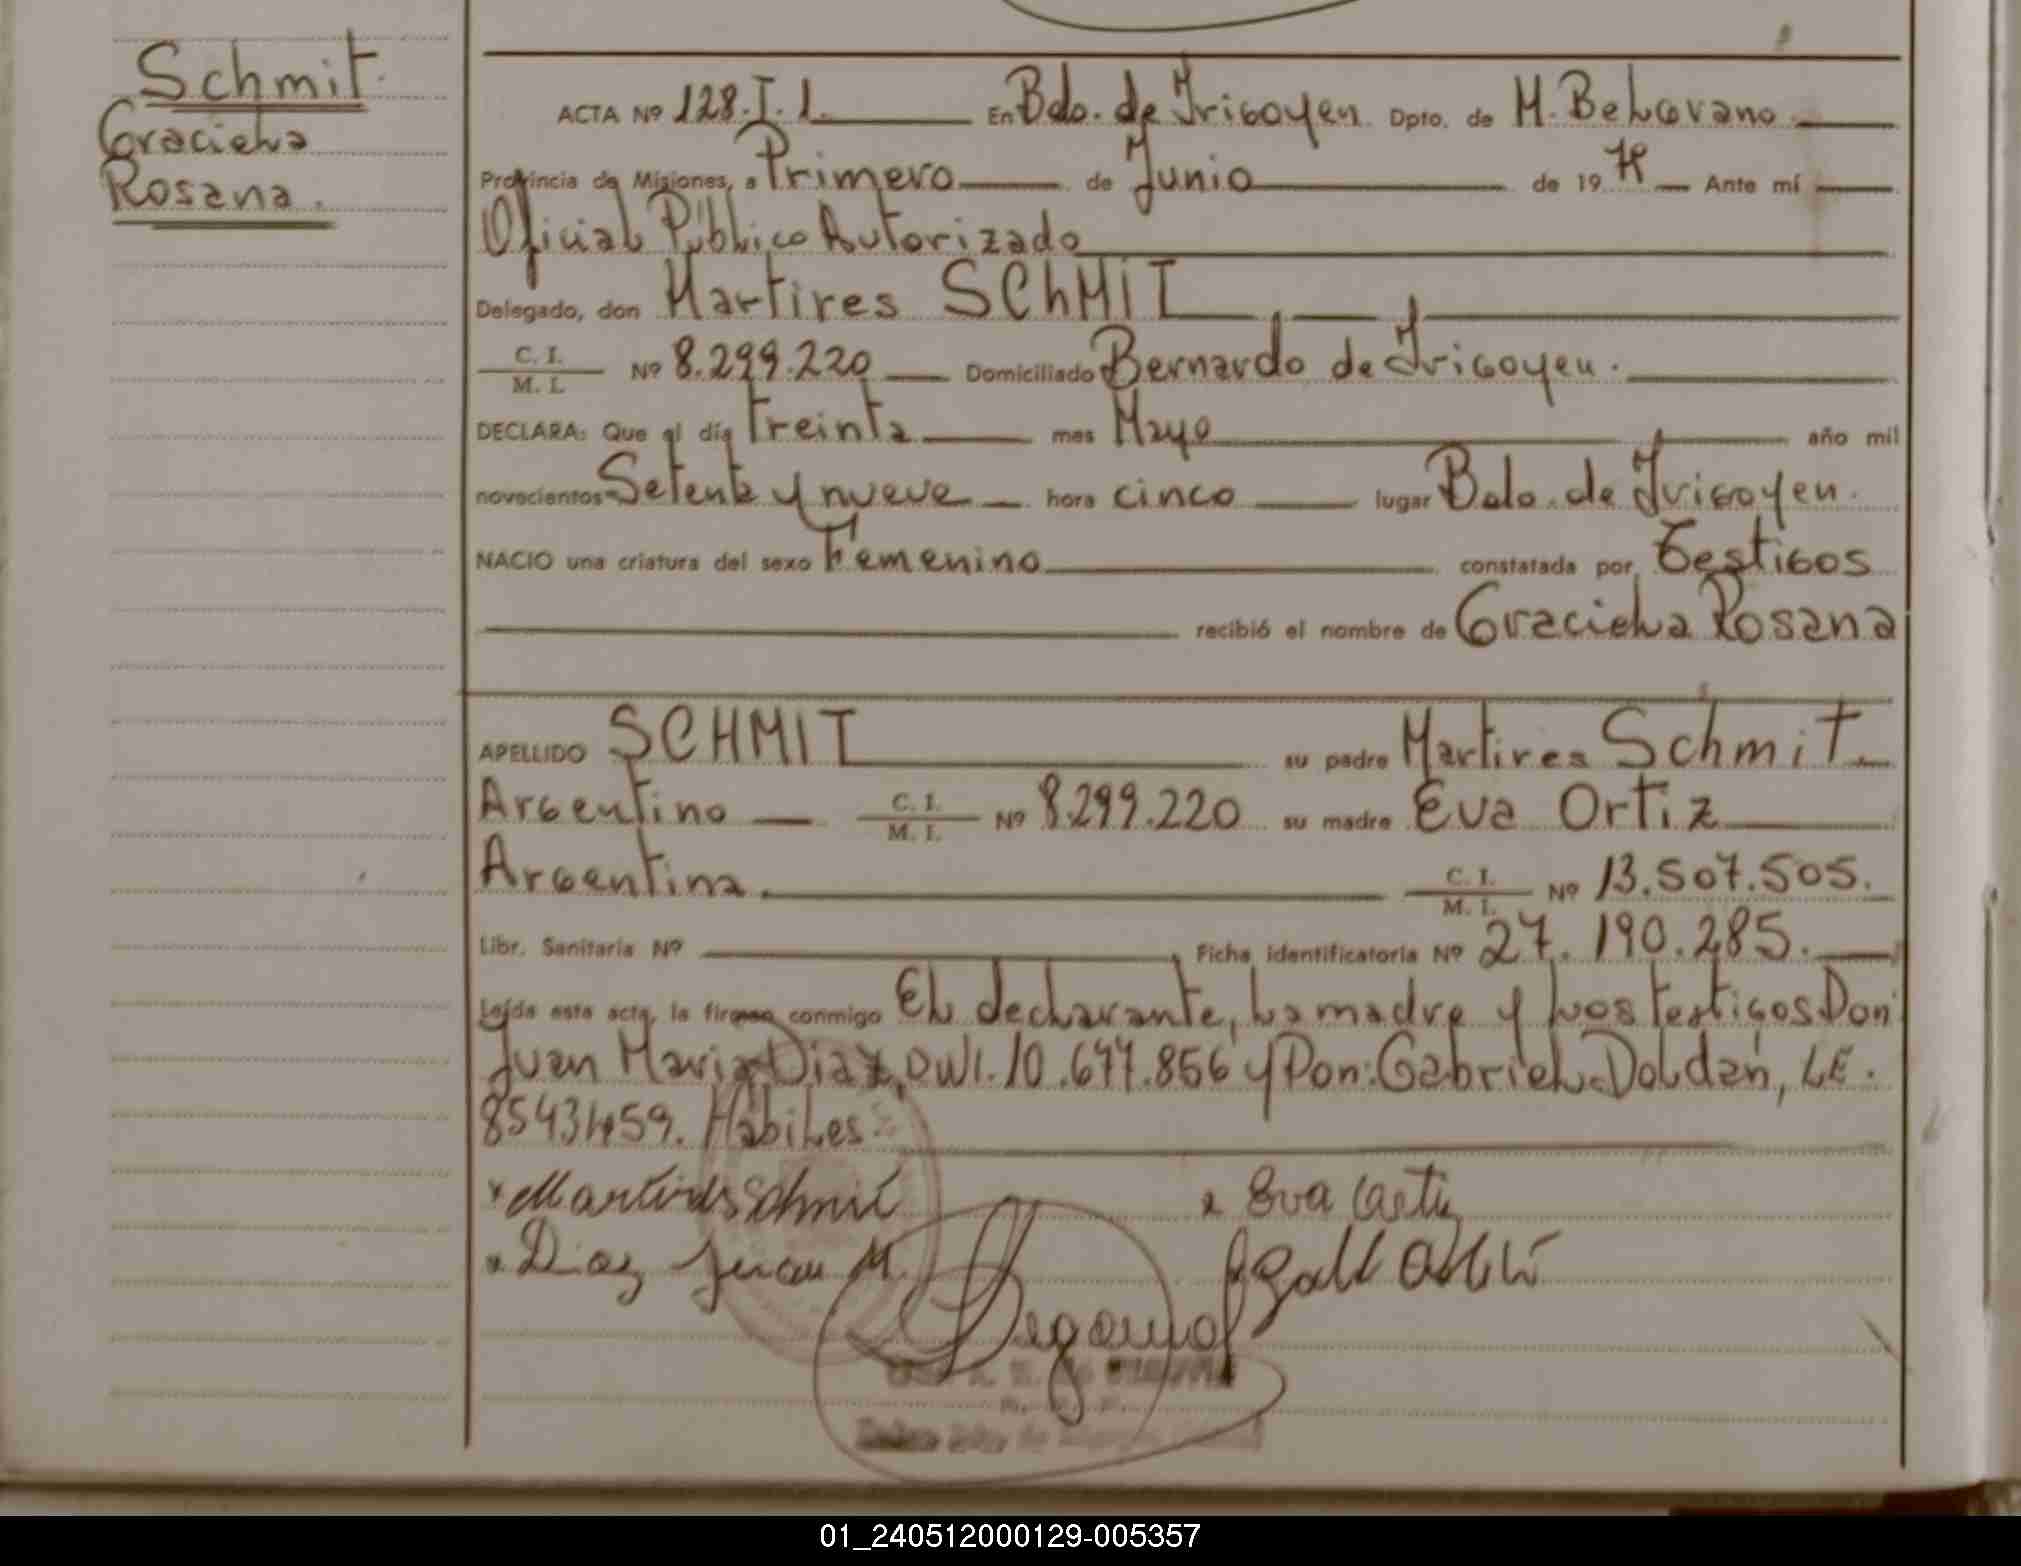 Schmit
Graciela
Rosana.
ACTA Nº 128.T.1. En Bdo. de Irigoyen Dpto. de M. Belgrano
Provincia de Misiones, a Primero de Junio de 19 79 Ante mí
Oficial Público Autorizado
Delegado, don Martires SCHMIT
C. I. / M. I. Nº 8.299.220 Domiciliado Bernardo de Irigoyen.
DECLARA: Que el día treinta mes Mayo año mil
novecientos Setenta y nueve hora cinco lugar Bdo. de Irigoyen.
NACIO una criatura del sexo Femenino constatada por Testigos
recibió el nombre de Graciela Rosana
APELLIDO SCHMIT su padre Martires Schmit
Argentino C. I. / M. I. Nº 8.299.220 su madre Eva Ortiz
Argentina. C. I. / M. I. Nº 13.507.505.
Libr. Sanitaria Nº Ficha identificatoria Nº 27.190.285.
Leída esta acta, la firman conmigo El declarante, la madre y los testigos Don
Juan Maria Diaz, DNI. 10.677.856 y Don: Gabriel Doldán, LE.
8543459. Hábiles
x Martires Schmit x Eva Ortiz
x Diaz Juan M.
01_240512000129-005357